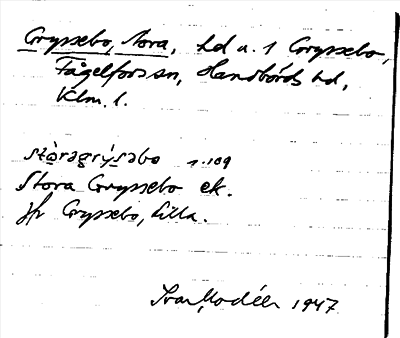 Gryssebo, Stora, hd u. 1 Gryssebo,
Fågelfors sn, Handbörds hd,
Klm. l.
stòragrýsabo s. 109
Stora Gryssebo ek.
jfr Gryssebo, Lilla.
Ivar Modéer 1947